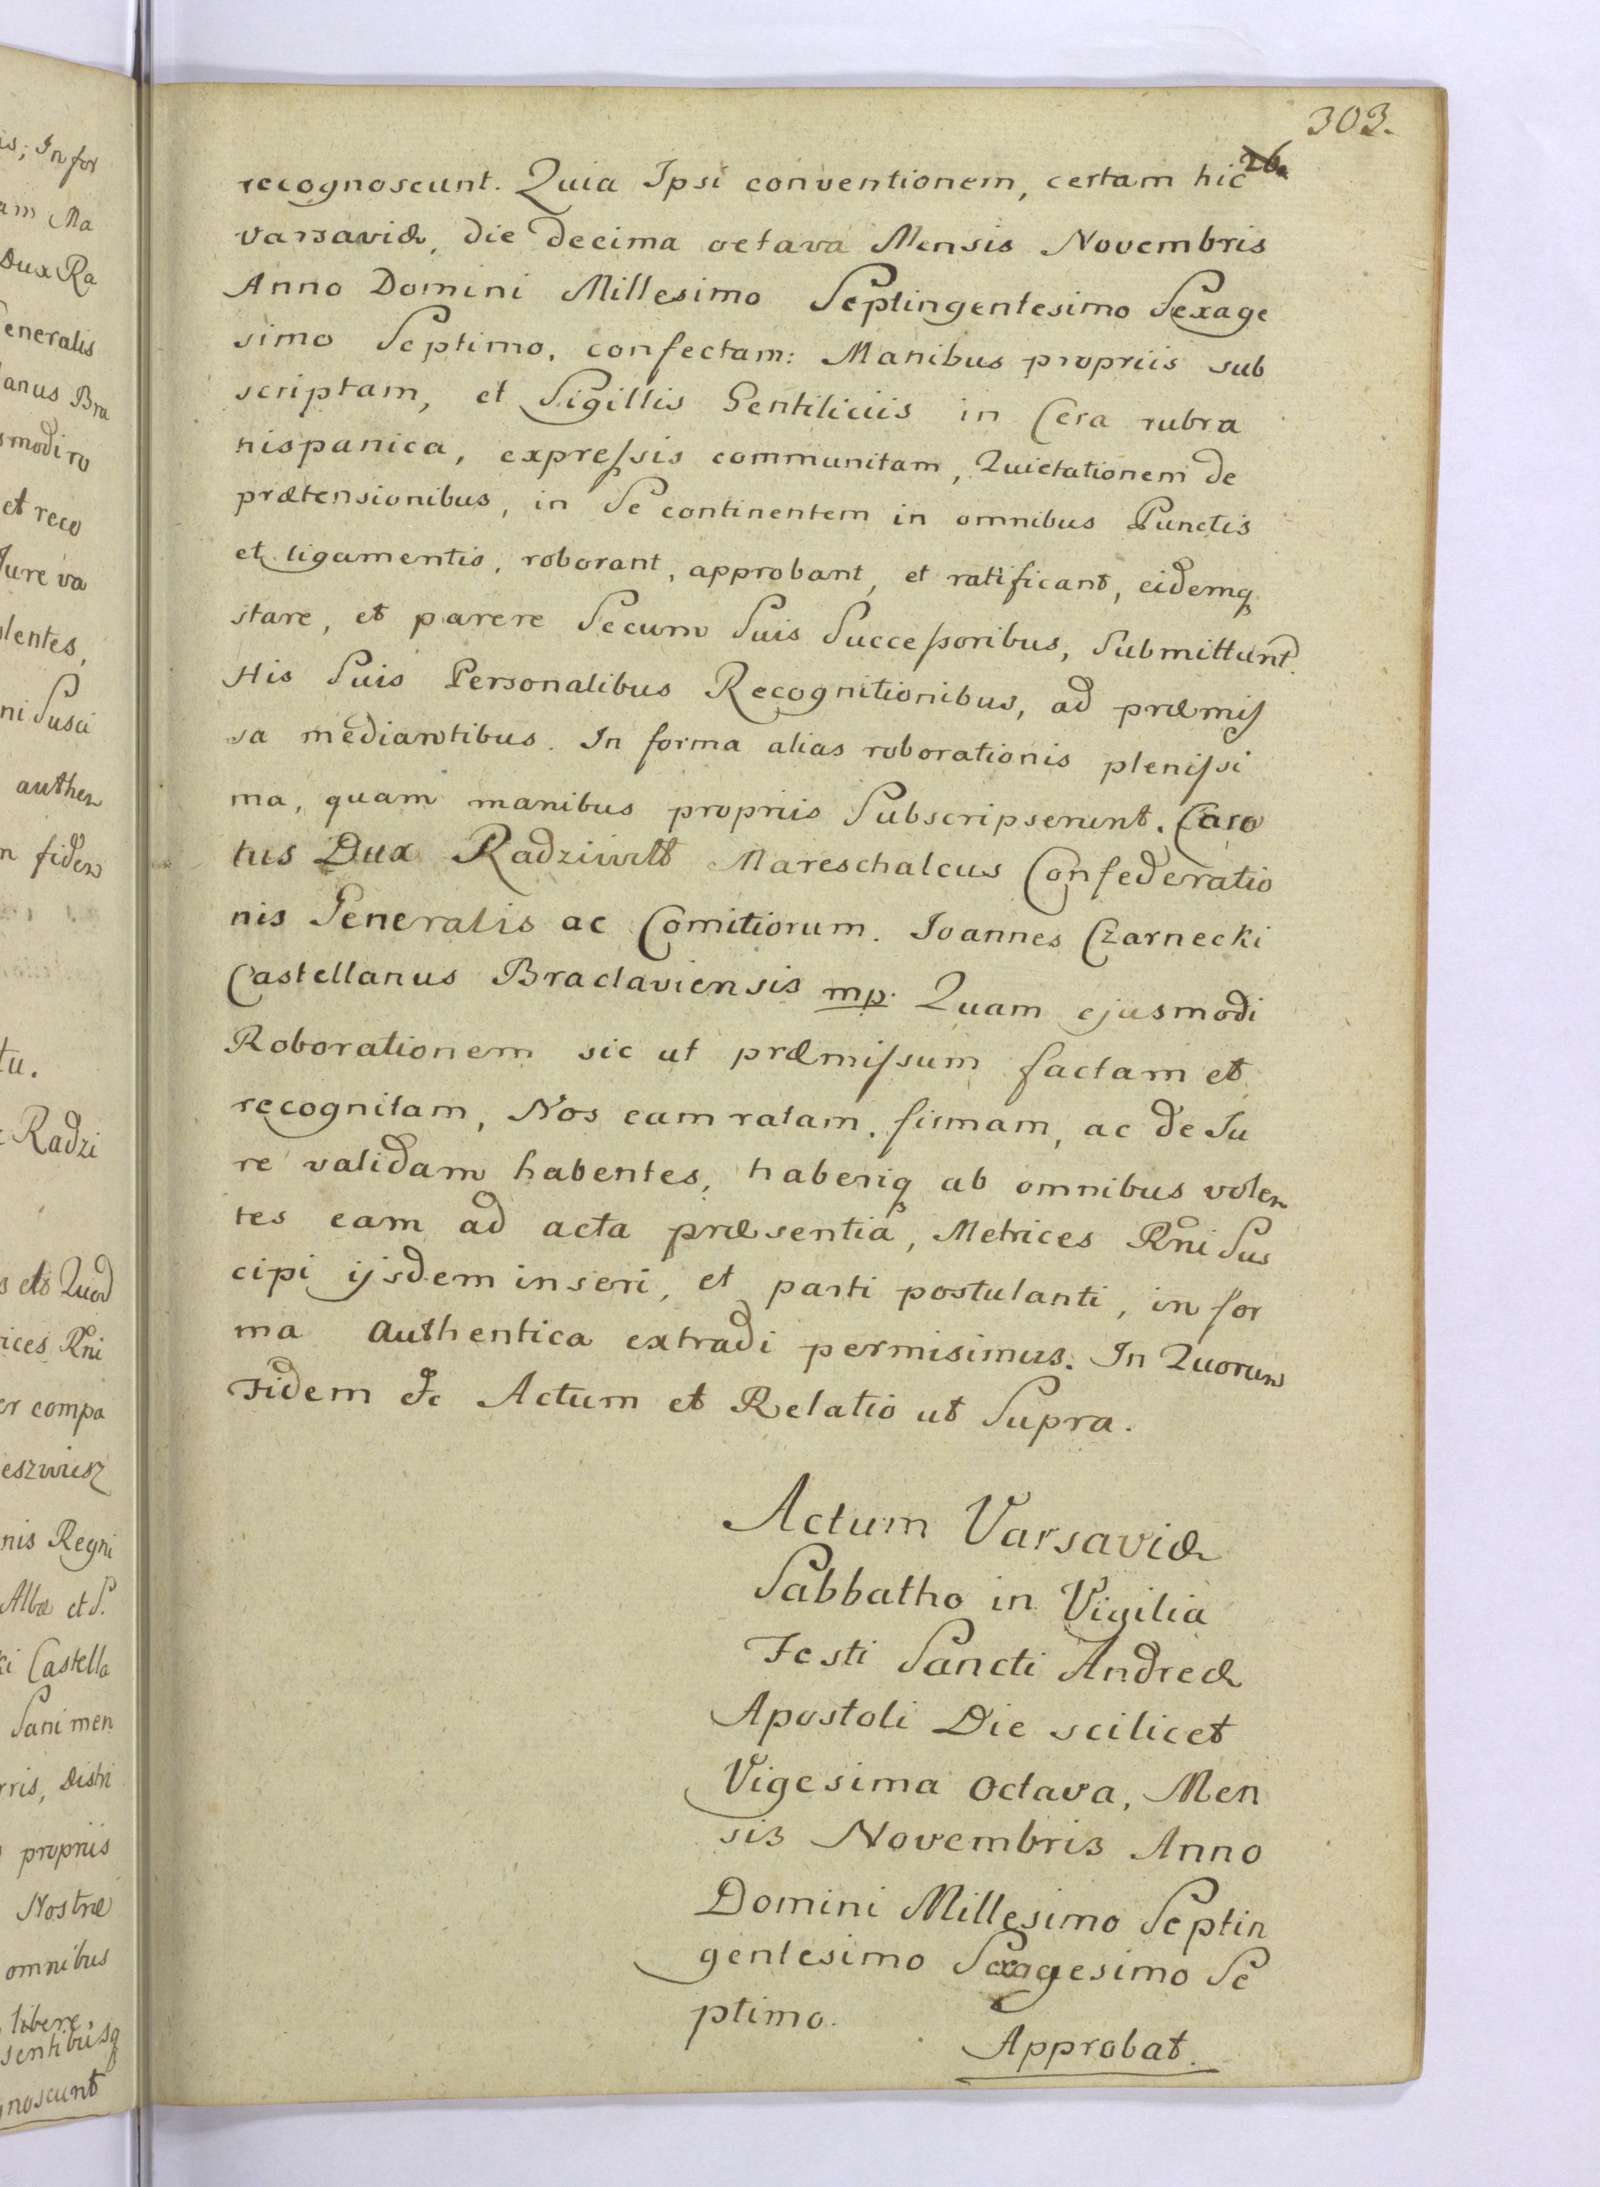 303.
26.
recognoscunt. Quia Ipsi conventionem, certam hic
Varsaviæ, die decima octava Mensis Novembris
Anno Domini Millesimo Septingentesimo Sexage
simo Septimo, confectam: Manibus propriis sub
scriptam, et Sigillis Gentiliciis in Cera rubra
hispanica, expressis communitam, Quietationem de
prætensionibus, in Se continentem in omnibus Punctis
et ligamentis, roborant, approbant, et ratificant, eidemq
stare, et parere Secum Suis Successoribus, Submittunt.
His Suis Personalibus Recognitionibus, ad præmis
sa mediantibus. In forma alias roborationis plenissi
ma, quam manibus propriis Subscripserunt. Caro
lus Dux Radziwill Mareschalcus Confederatio
nis Generalis ac Comitiorum. Ioannes Czarnecki
Castellanus Braclaviensis mp. Quam ejusmodi
Roborationem sic ut præmissum factam et
recognitam, Nos eam ratam, firmam, ac de Ju
re validam habentes, haberiq ab omnibus volen
tes eam ad acta præsentia, Metrices Rni Sus
cipi ijsdem inseri, et parti postulanti, in for
ma authentica extradi permisimus. In Quorum
Fidem &c Actum et Relatio ut Supra.
Actum Varsaviæ
Sabbatho in Vigilia
Festi Sancti Andreæ
Apostoli Die scilicet
Vigesima octava, Men
sis Novembris Anno
Domini Millesimo Septin
gentesimo Sexagesimo Se
ptimo.
Approbat.
is; In for
am Ma
Dux Ra
Generalis
lanus Bra
smodi ro
et reco
Jure va
olentes,
ni Susci
authen
m fidem
tu.
Radzi
s et Quod
ices Rni
er compa
eszwisz
nis Regni
Albæ et S.
ki Castella
Sani men
rris, Distri
propriis
Nostræ
omnibus
libere,
sentibusq
gnoscunt